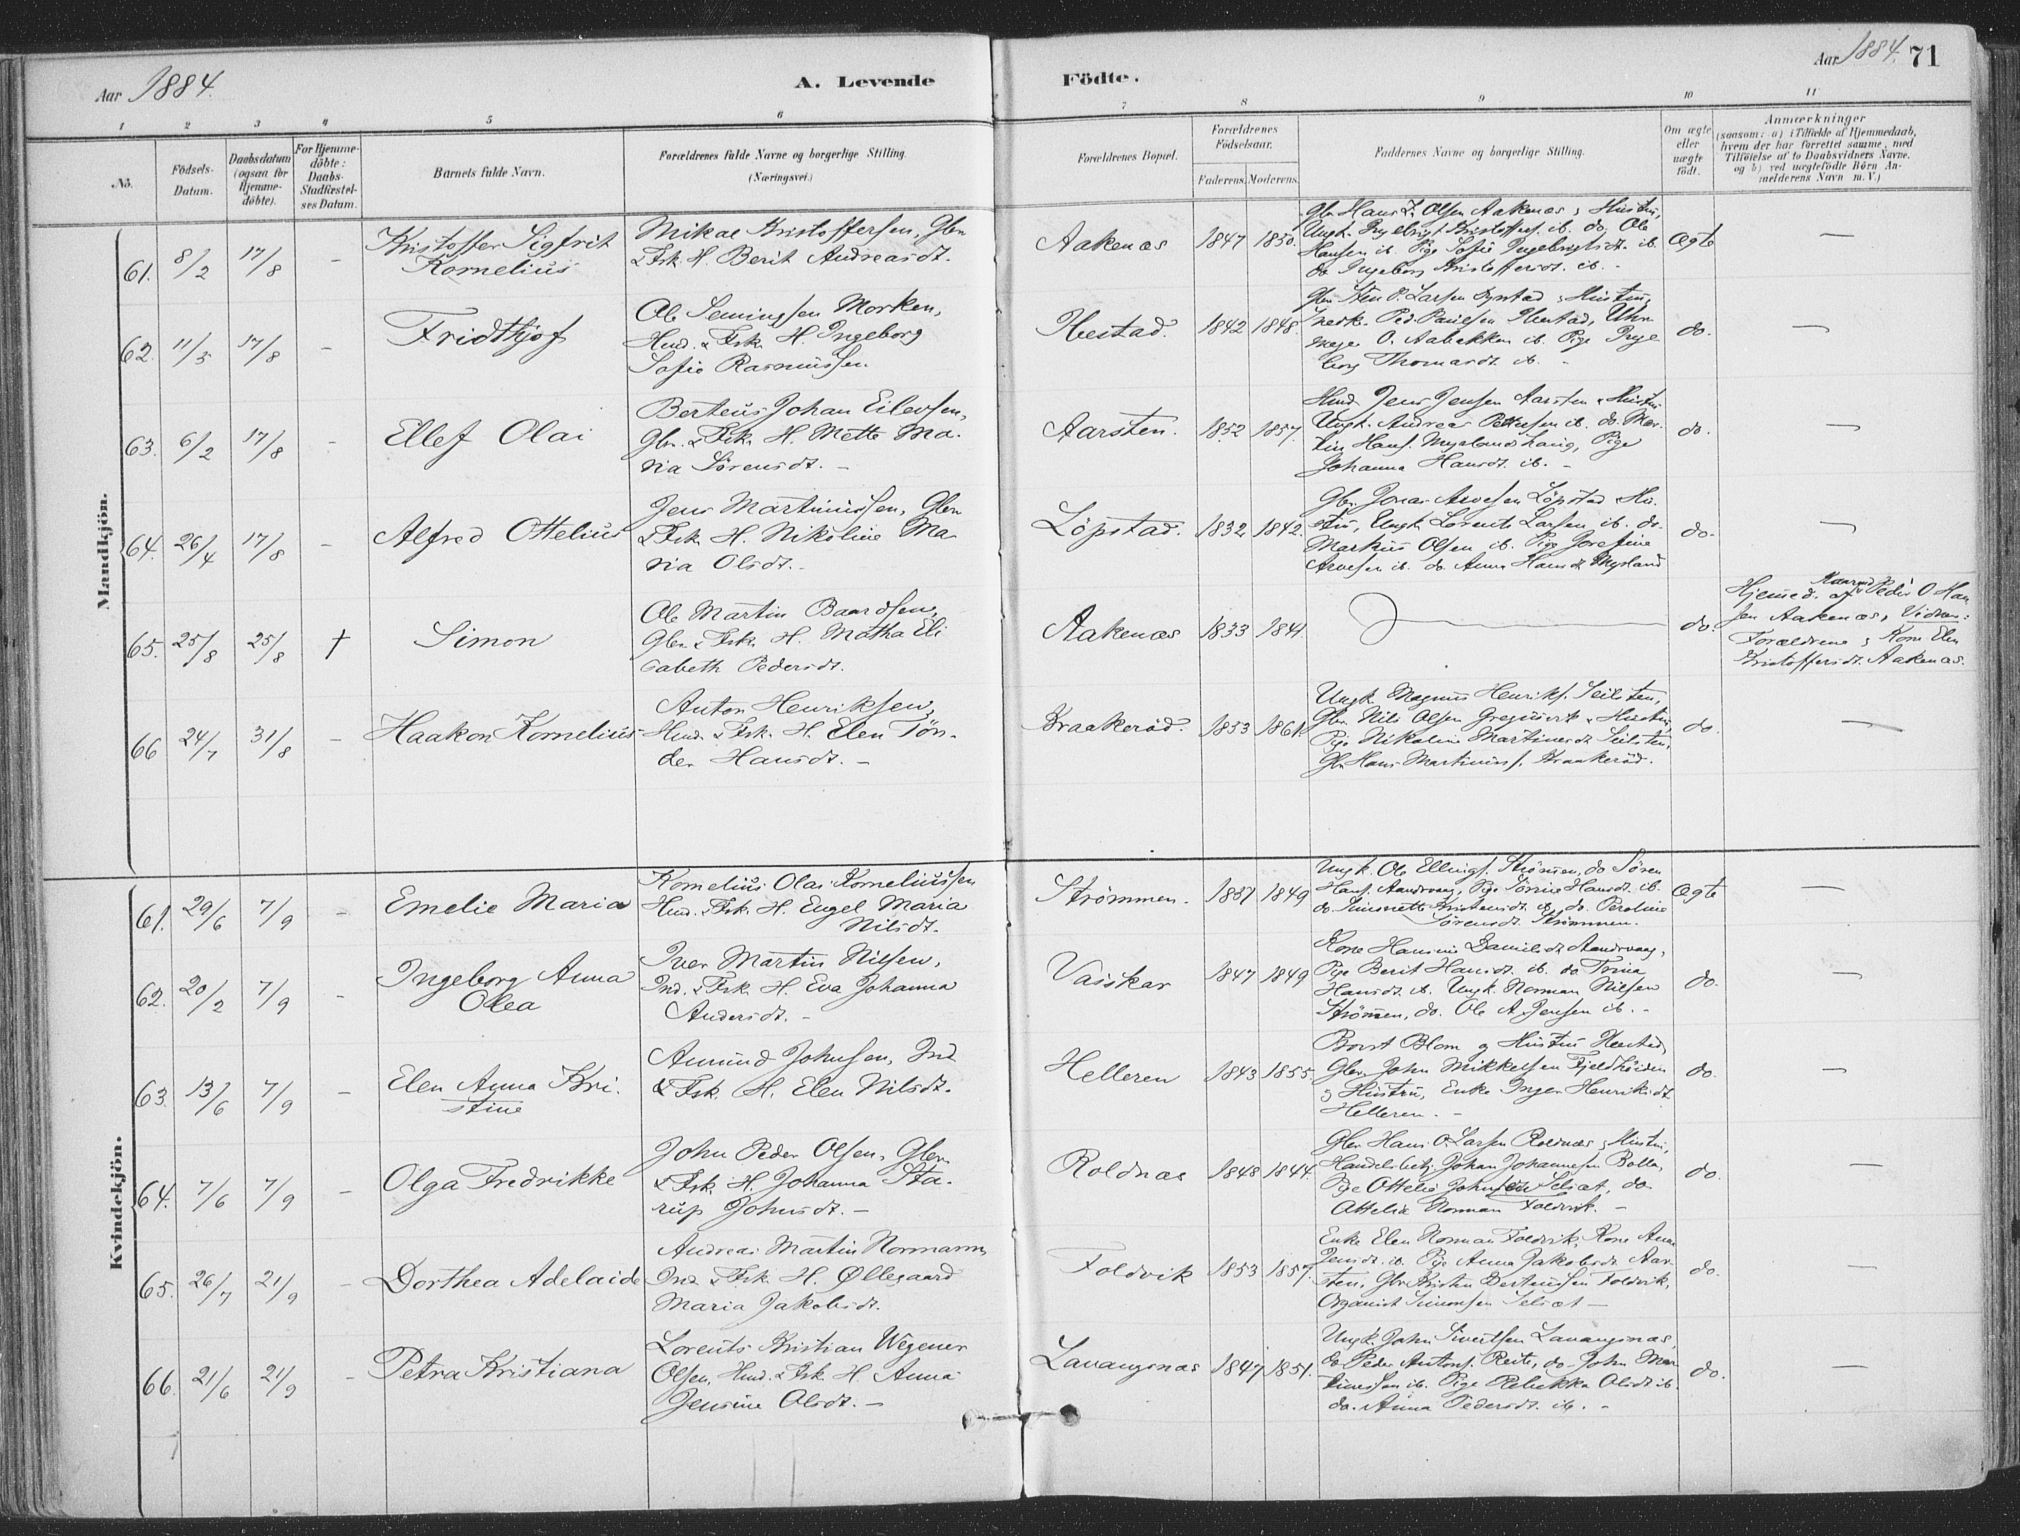 Aar 1884.
A. Levende
Födte.
Aar 1884. 71
1 2 3 4 5 6 7 8 9 10 11
No.
Födsels-
Datum.
Daabsdatum
(ogsaa for
Hjemme-
döbte).
For Hjemme-
döbte:
Daabs-
Stadfæstel-
ses Datum.
Barnets fulde Navn.
Forældrenes fulde Navne og borgerlige Stilling.
(Næringsvei.)
Forældrenes Bopæl.
Forældrenes
Födselsaar.
Faderens. Moderens.
Faddernes Navne og borgerlige Stilling.
Om ægte
eller
uægte
födt.
Anmærkninger
(saasom: a) i Tilfælde af Hjemmedaab,
hvem der har forrettet samme, med
Tilföielse af to Daabsvidners Navne,
og b) ved uægtefödte Börn An-
melderens Navn m. V.)
Mandkjön.
61. 8/2 17/8 - Kristoffer Sigfrit
Kornelius
Mikal Kristoffersen, Gbr.
& Fsk. H. Berit Andreasdt.
Aakenæs 1847 1850.
Gbr Hans Z. Olsen Aakenæs & Hustru,
Ungk. Ingebrigt Kristoffers. ib. do Ole
Hansen ib. Pige Sofie Ingebrigtsdt. ib.
do Ingeborg Kristoffersdt. ib. -
Ægte —
62. 11/5 17/8 - Fridthjof
Ole Semingsen Morken,
Hmd. & Fsk. H. Ingeborg
Sofie Rasmussen
Ibestad. 1842 1848.
Larsen & Hustru,
Ped. Paulsen Ibestad, Uhr-
mager O. Aabakken ib. Pige Inge
borg Thomasdt. ib. -
do. —
63. 6/2 17/8 - Ellef Olai
Berteus Johan Eilevsen,
Gbr. & Fsk. H. Mette Ma-
ria Sörensdt. -
Aarsten. 1832 1857.
Hmd Jens Jensen Aarsten & Hustru
Ungk. Andreas Pettersen ib. do. Mar-
tin Hans. Myrlandshaug, Pige
Johanna Hansdt. ib. -
do. —
64. 26/4 17/8 - Alfred Ottelius
Jens Martinussen, Gbr
& Fsk. H. Nikoline Ma-
ria Olsdt. -
Löpstad. 1832 1842.
Gbr. Jonas Arvesen Löpstad & Hu-
stru, Ungk. Lorents Larsen ib. do.
Markus Olsen ib. Pige Josefine
Arvesen ib. do. Anna Hansdt Myrland
do. —
65. 25/8 25/8 † Simon
Ole Martin Baardsen,
Gbr. & Fsk. H. Martha Eli
sabeth Pedersdt.
Aakenæs 1833 1841.
do.
Hjemmed. af Peder O Han
sen Aakenæs, Vidner:
Forældrene & Kone Elen
Kristoffersdt. Aakenæs.
66 24/7 31/8 - Haakon Kornelius
Anton Henriksen,
Hmd. & Fsk. H. Elen Tön-
der Hansdt. -
Kraakeröd. 1853 1861.
Ungk. Magnus Henriks. Seilsten,
Gbr. Nils Olsen Gregusvik & Hustru,
Pige Nikoline Martinesdt. Seilsten,
Gbr Hans Martinuss. Kraakeröd.
do. —
Kvindekjön.
61. 29/6 7/9 - Emelie Maria
Kornelius Olai Korneliussen
Hmd. & Fsk. H. Engel Maria
Nilsdt.
Strömmen. 1857 1849
Ungk. Ole Ellings. Strömmen, do Sören
Hans. Aandvaag, Pige Sörine Hansdt. ib.
do. Simonette Kristensdt ib. do. Peroline
Sörensdt. Strömmen.
Ægte —
62. 20/2 7/9 - Ingeborg Anna
Olea
Iver Martin Nilsen,
Ind. & Fsk. H. Eva Johanna
Andersdt. -
Vasskar 1847 1849
Kone Hansine Danielsdt Aandvaag,
Pige Berit Hansdt. ib. do Trina
Hansdt. ib. Ungk. Norman Nilsen
Strömmen, do. Ole A. Jensen ib. -
do. —
63. 13/6 7/9 - Elen Anna Kri-
stine
Amund Johnsen, Ind
& Fsk. H. Elen Nilsdt.
Helleren 1843 1855.
Blom og Hustru Ibestad,
Gbr. John Mikkelsen Fjeldhöiden
& Hustru, Enke Inger Henriksdt
Helleren. -
do. —
64. 7/6 7/9 - Olga Fredrikke
John Peder Olsen, Gbr.
& Fsk. H. Johanna Sta-
rup Johnsdt. -
Roldnæs 1848 1844.
Gbr Hans O. Larsen Roldnæs & Hustru,
Handelsbetj. Johan Johannesen Bolla,
Pige Ottelie Johnsen Selsæt, do
Attelie Norman Foldvik. -
do. —
65. 26/7 21/9 - Dorthea Adelaide
Andreas Martin Normann,
Ind. & Fsk. H. Øllegaard
Maria Jakobsdt.
Foldvik 1853 1857.
Enke Elen Norman Foldvik, Kone Anna
Jensdt. ib. Pige Anna Jakobsdt Aar-
sten, Gbr Kristen Berteussen Foldvik,
Organist Simonsen Selsæt -
do. —
66. 21/6 21/9 - Petra Kristiana
Lorents Kristian Wegener
Olsen, Hmd. & Fsk. H. Anna
Jensine Olsdt. -
Lavangsnæs 1847 1851.
Ungk. John Sivertsen Lavangsnæs,
do Peder Antons. Reite, do John Mar-
tinussen ib. Pige Rebekka Olsdt ib.
do. Anna Pedersdt. ib. -
do. —